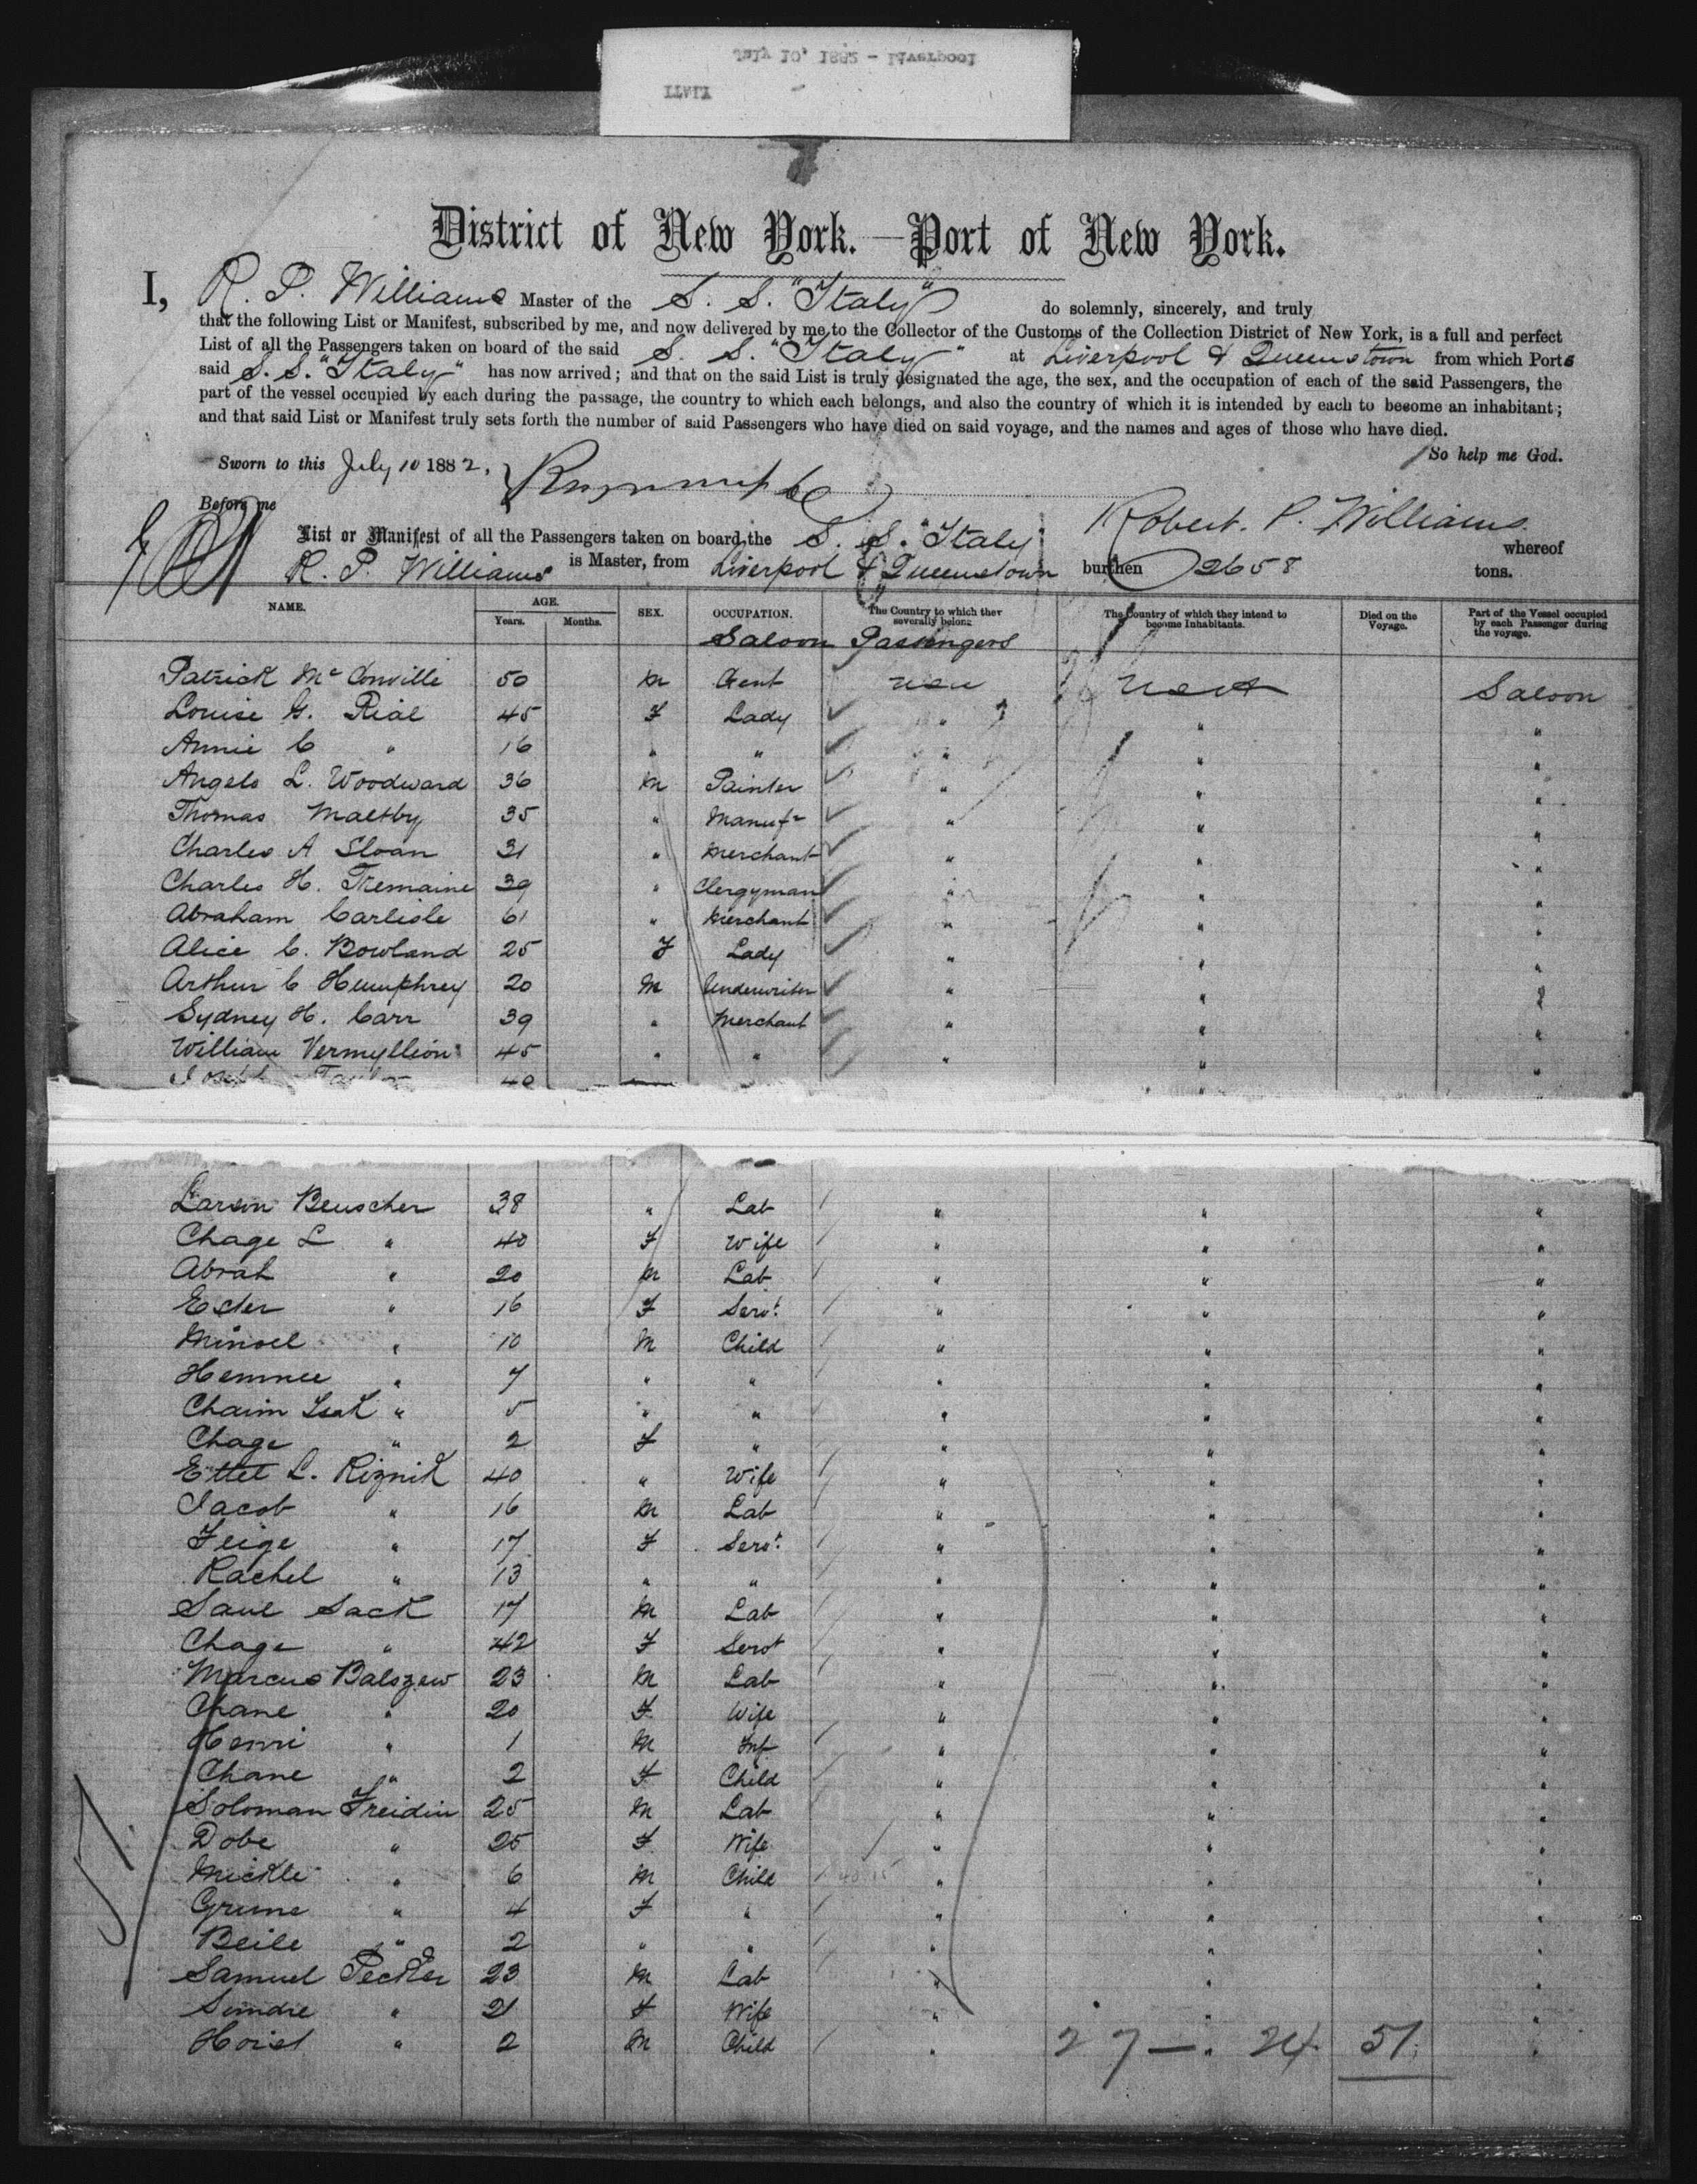 July 10, 1882 - Liverpool
ITALY
District of New York.—Port of New York.
I, R. P. Williams Master of the S. S. "Italy" do solemnly, sincerely, and truly
that the following List or Manifest, subscribed by me, and now delivered by me to the Collector of the Customs of the Collection District of New York, is a full and perfect
List of all the Passengers taken on board of the said S. S. "Italy" at Liverpool & Queenstown from which Ports
said S. S. "Italy" has now arrived; and that on the said List is truly designated the age, the sex, and the occupation of each of the said Passengers, the
part of the vessel occupied by each during the passage, the country to which each belongs, and also the country of which it is intended by each to become an inhabitant;
and that said List or Manifest truly sets forth the number of said Passengers who have died on said voyage, and the names and ages of those who have died.
Sworn to this July 10 1882, So help me God.
Before me
Robert. P. Williams
List or Manifest of all the Passengers taken on board the S. S. "Italy" whereof
R. P. Williams is Master, from Liverpool & Queenstown burthen 2658 tons.
NAME. AGE. Years. Months. SEX. OCCUPATION. The Country to which they severally belong. The Country of which they intend to become Inhabitants. Died on the Voyage. Part of the Vessel occupied by each Passenger during the voyage.
Saloon Passengers
Patrick McConville 50 M Gent Saloon
Louise G. Rial 45 F Lady " " "
Annie C " 16 " " " " "
Angelo L. Woodward 36 M Painter " " "
Thomas Maltby 35 " Manufr " " "
Charles A Sloan 31 " Merchant " " "
Charles H. Tremaine 39 " Clergyman " " "
Abraham Carlisle 61 " Merchant " " "
Alice C. Bowland 25 F Lady " " "
Arthur C Humphrey 20 M Underwriter " " "
Sydney H. Carr 39 " Merchant " " "
William Vermyllion 45 " " " " "
Joseph Taylor 40 " "
Larson Beuscher 38 " Lab " " "
Chage L " 40 F Wife " " "
Abrah " 20 M Lab " " "
Ester " 16 F Servt " " "
Minoel " 10 M Child " " "
Hemnee " 7 " " " " "
Chaim Isak " 5 " " " " "
Chage " 2 F " " " "
Ettel L. Riznik 40 " Wife " " "
Jacob " 16 M Lab " " "
Feige " 17 F Servt " " "
Rachel " 13 " " " " "
Saul Sack 17 M Lab " " "
Chage " 42 F Servt " " "
Marcus Balszew 23 M Lab " " "
Chane " 20 F Wife " " "
Henri " 1 M Inf " " "
Chane " 2 F Child " " "
Soloman Freidin 25 M Lab " " "
Dobe " 25 F Wife " " "
Mickle " 6 M Child " " "
Grune " 4 F " " " "
Beile " 2 " " " " "
Samuel Peckler 23 M Lab " " "
Simdre " 21 F Wife " " "
Hoist " 2 M Child " " "
27 — 24 51
51.